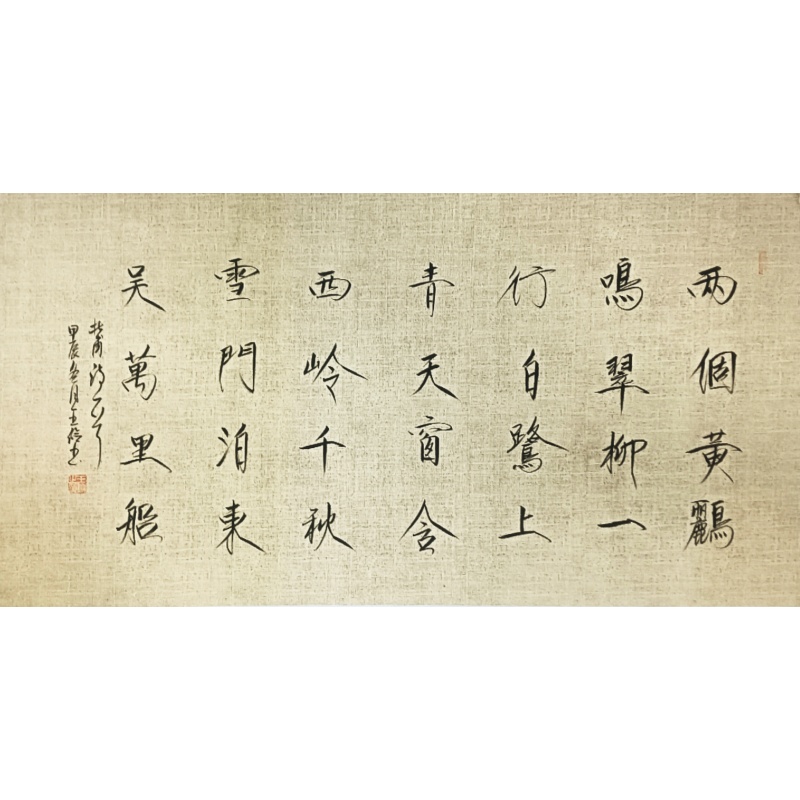 两個黄鸝
鳴翠柳一
行白鷺上
青天窗含
西岭千秋
雪門泊東
吴萬里船
杜甫詩一首
甲辰